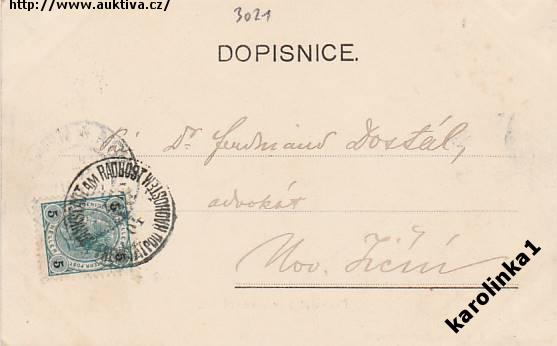 http://www.auktiva.cz/
3021
DOPISNICE.
Dr Ferdinand Dostál,
advokát
Nov. Jičín
5
5
5
karolinka1